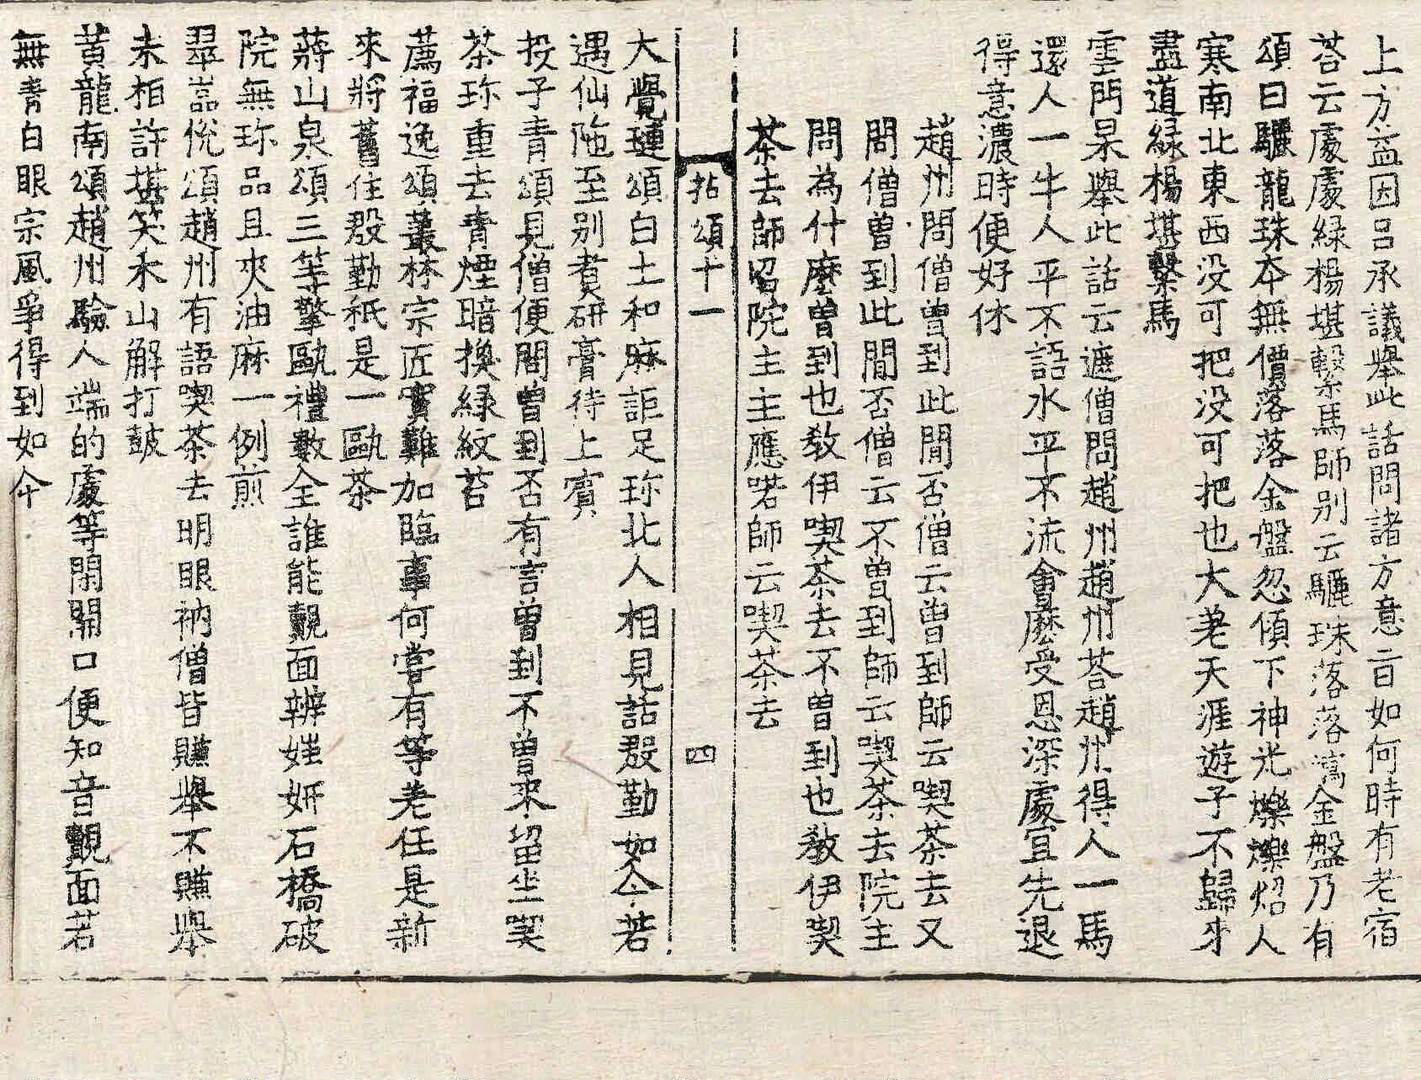 上方益因呂承議舉此話問諸方意旨如何時有老宿
荅云處處綠楊堪繫馬師别云驪珠落落瀉金盤乃有
頌曰驪龍珠夲無價落落金盤忽傾下神光爍爍炤人
寒南北東西没可把没可把也大差天涯遊子不歸來
盡道緑楊堪繫馬
雲門杲舉此話云遮僧問趙州趙州荅趙州得人一馬
還人一牛人平不語水平不流會麽受恩深處宜先退
得意濃時便好休
趙州問僧曾到此間否僧云曾到師云喫茶去又
問僧曾到此間否僧云不曾到師云喫茶去院主
問為什麽曾到也教伊喫茶去不曾到也教伊喫
茶去師召院主主應喏師云喫茶去
拈頌十一 四
大覺璉頌白土和麻詎足珎北人相見話殷勤如今若
遇仙陁至别煑研膏待上賔
投子青頌見僧便問曾到否有言曾到不曾來留坐喫
茶珎重去青煙暗換緑紋苔
薦福逸頌叢林宗匠實難加臨事何嘗有等差任是新
來將舊住殷勤秖是一甌茶
蔣山泉頌三等擎甌禮數全誰能覿面辨媸妍石橋破
院無珎品且夾油麻一例煎
翠嵓恱頌趙州有語喫茶去明眼衲僧皆賺舉不賺舉
未相許堪笑禾山解打皷
黄龍南頌趙州驗人端的處等閑開口便知音覿面若
無青白眼宗風爭得到如今